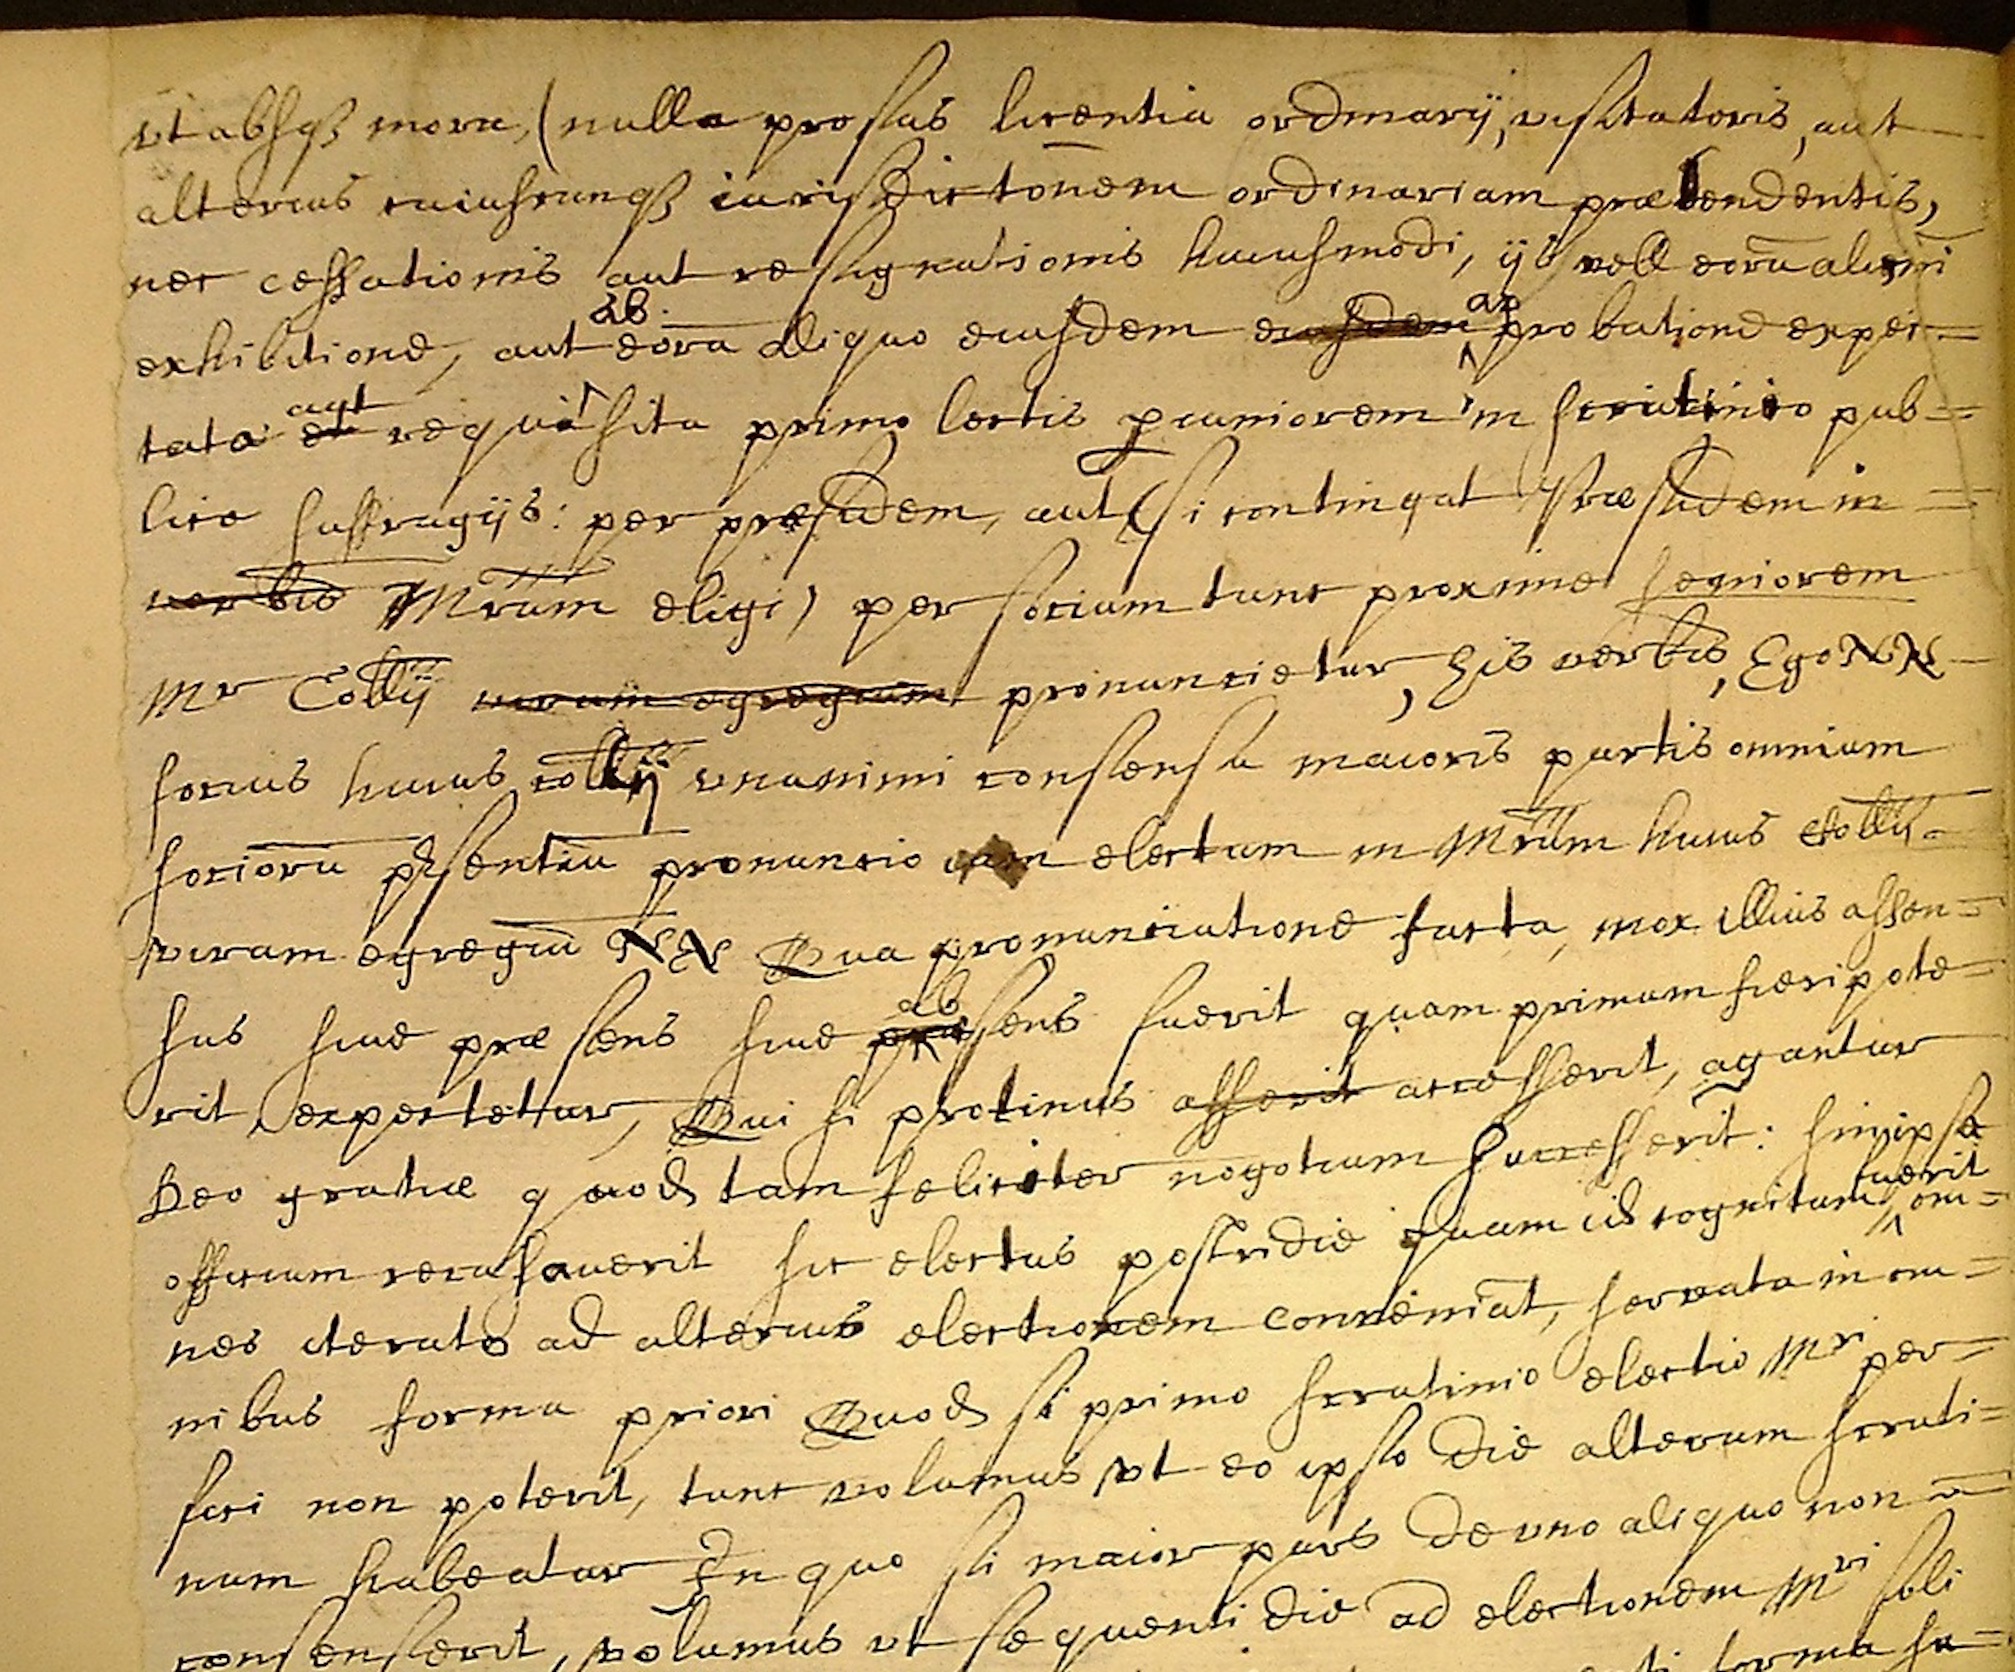 vt absq3 mora, (nulla prorsus licentia ordinarij, visitatoris, aut
alterius cuiuscunq3 iurisdictionem ordinariam prætendentis,
nec cessationis aut resignationis huiusmodi, ijs vell eorū alicui
exhibitione, aut ab eorū aliquo eiusdem eiusdem approbatione expec=
tata et aut requisita primo lectis p iuniorem in scrutinio pub=
lice suffragijs: per præsidem, aut (si contingat Præsidem in =
verbis Mrum eligi) per socium tunc proxime seniorem
Mr Collij virum egregium pronuncietur, his verbis, Ego NN
socius huius collij vnanimi consensu maioris partis omnium
sociorū pśentiū pronuncio electum in Mrum huius Collij
virum egregiū NN Qua pronunciatione facta, mox illius assen=
sus siue præsens siue absens fuerit quam primum fieri pote=
rit, expectetur, Qui si protinus asserit accesserit, agantur
Deo gratiæ quod tam feliciter negotium successerit: sin ipse
officium recusauerit sic electus postridie quam id cognitum fuerit om=
nes iterato ad alterius electionem conueniāt, seruata in om=
nibus forma priori Quod si primo scrutinio electio Mri per=
fici non poterit, tunc volumus vt eo ipso die alterum scruti=
nium habeatur In quo si maior pars de vno aliquo non
consenserit, volumus vt sequenti die ad electionem Mri soli
forma